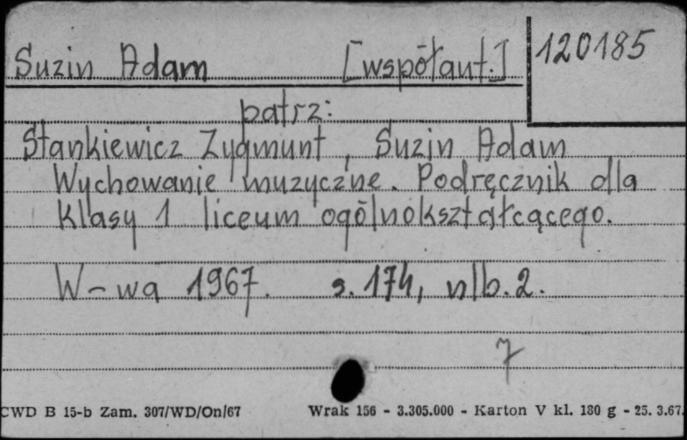 Suzin Adam [współaut.] 120185
patrz:
Stankiewicz Zygmunt, Suzin Adam
Wychowanie muzyczne. Podręcznik dla
klasy 1 liceum ogólnokształcącego.
W-wa 1967. s. 174, nlb. 2.
7
CWD B 15-b Zam. 307/WD/On/67 Wrak 156 - 3.305.000 - Karton V kl. 180 g - 25. 3.67.